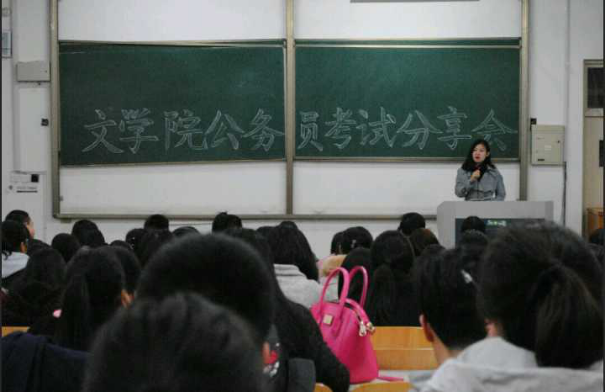 文学院公务员考试分享会